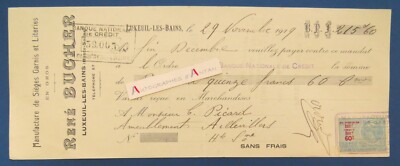 Manufacture de Sièges Garnis et Literies
EN GROS
RENÉ BUCHER
LUXEUIL-LES-BAINS
TÉLÉPHONE 57
BANQUE NATIONALE
DE CRÉDIT
LUXEUIL-LES-BAINS, 29 Novembre 1929 B.P.F. 215.60
fin Décembre veuillez payer contre ce mandat
à l'Ordre DE CRÉDIT la somme
AUTOGRAPHES & AUTOGRAPHS
quinze francs 60 c
Valeur en Marchandises
A Monsieur C. Picard
Ameublements Aillevillers
Hte Sne
SANS FRAIS